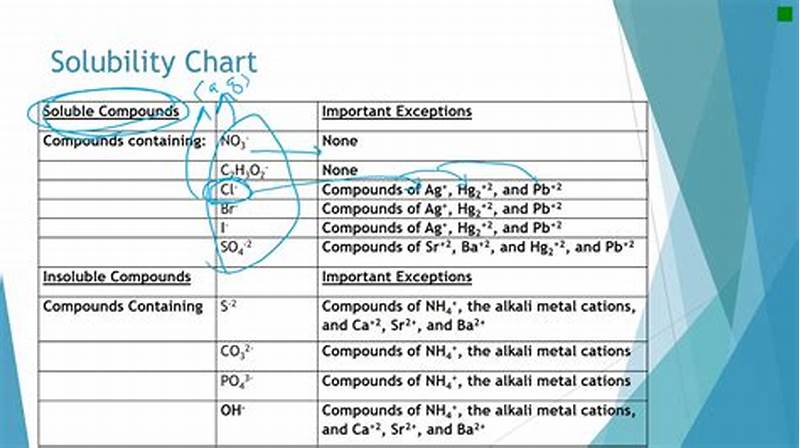 Solubility Chart
(aq)
Soluble Compounds Important Exceptions
Compounds containing: NO₃⁻ None
C₂H₃O₂⁻ None
Cl⁻ Compounds of Ag⁺, Hg₂⁺², and Pb⁺²
Br⁻ Compounds of Ag⁺, Hg₂⁺², and Pb⁺²
I⁻ Compounds of Ag⁺, Hg₂⁺², and Pb⁺²
SO₄⁻² Compounds of Sr⁺², Ba⁺², and Hg₂⁺², and Pb⁺²
Insoluble Compounds Important Exceptions
Compounds Containing S⁻² Compounds of NH₄⁺, the alkali metal cations,
and Ca⁺², Sr²⁺, and Ba²⁺
CO₃²⁻ Compounds of NH₄⁺, the alkali metal cations
PO₄³⁻ Compounds of NH₄⁺, the alkali metal cations
OH⁻ Compounds of NH₄⁺, the alkali metal cations,
and Ca⁺², Sr²⁺, and Ba²⁺